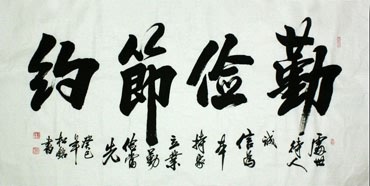 勤儉節約
處世
待人
誠
信為
本
持家
立業
勤
儉當
先
癸巳
年
松銘
書